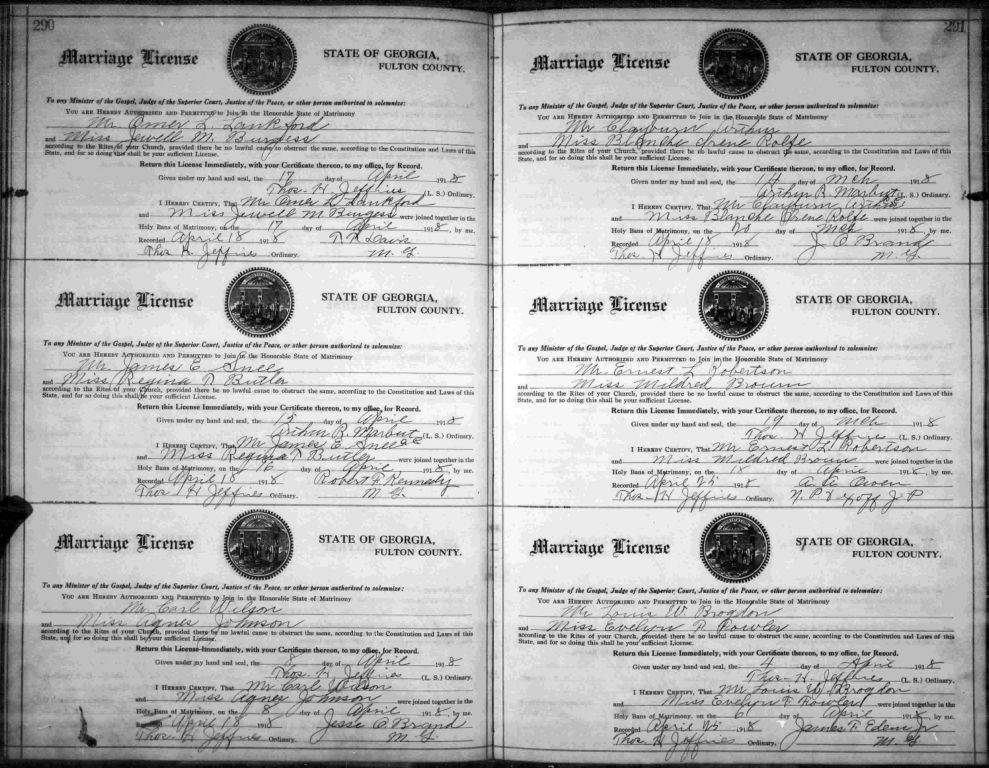 290
Marriage License
STATE OF GEORGIA,
FULTON COUNTY.
To any Minister of the Gospel, Judge of the Superior Court, Justice of the Peace, or other person authorized to solemnize:
YOU ARE HEREBY AUTHORIZED AND PERMITTED to Join in the Honorable State of Matrimony
Mr. Omer L. Lankford
and Miss Jewell M. Burgess
according to the Rites of your Church, provided there be no lawful cause to obstruct the same, according to the Constitution and Laws of this
State, and for so doing this shall be your sufficient License.
Return this License Immediately, with your Certificate thereon, to my office, for Record.
Given under my hand and seal, the 17 day of April 1918
Thos. H. Jeffries (L. S.) Ordinary.
I HEREBY CERTIFY, That Mr Omer L. Lankford
and Miss Jewell M Burgess were joined together in the
Holy Bans of Matrimony, on the 17 day of April 1918, by me.
Recorded April 18 1918
Thos H. Jeffries Ordinary. M. G.
Marriage License
STATE OF GEORGIA,
FULTON COUNTY.
To any Minister of the Gospel, Judge of the Superior Court, Justice of the Peace, or other person authorized to solemnize:
YOU ARE HEREBY AUTHORIZED AND PERMITTED to Join in the Honorable State of Matrimony
Mr. James E. Snee
and Miss Regina Butler
according to the Rites of your Church, provided there be no lawful cause to obstruct the same, according to the Constitution and Laws of this
State, and for so doing this shall be your sufficient License.
Return this License Immediately, with your Certificate thereon, to my office, for Record.
Given under my hand and seal, the day of April 1918
Arthur R. Marbut (L. S.) Ordinary.
I HEREBY CERTIFY, That Mr James E. Snee
and Miss Regina Butler were joined together in the
Holy Bans of Matrimony, on the 16 day of April, 1918, by me.
Recorded April 18 1918 Robert F. Kennedy
Thos H Jeffries Ordinary. M. G.
Marriage License
STATE OF GEORGIA,
FULTON COUNTY.
To any Minister of the Gospel, Judge of the Superior Court, Justice of the Peace, or other person authorized to solemnize:
YOU ARE HEREBY AUTHORIZED AND PERMITTED to Join in the Honorable State of Matrimony
Mr. Carl Wilson
and Miss Agnes Johnson
according to the Rites of your Church, provided there be no lawful cause to obstruct the same, according to the Constitution and Laws of this
State, and for so doing this shall be your sufficient License.
Return this License Immediately, with your Certificate thereon, to my office, for Record.
Given under my hand and seal, the 8 day of April 1918
Thos. H Jeffries (L. S.) Ordinary.
I HEREBY CERTIFY, That Mr Carl Wilson
and Miss Agnes Johnson were joined together in the
Holy Bans of Matrimony, on the 8 day of April 1918, by me.
Recorded April 18 1918 Jesse O Brand
Thos. H Jeffries Ordinary. M. G.
291
Marriage License
STATE OF GEORGIA,
FULTON COUNTY.
To any Minister of the Gospel, Judge of the Superior Court, Justice of the Peace, or other person authorized to solemnize:
YOU ARE HEREBY AUTHORIZED AND PERMITTED to Join in the Honorable State of Matrimony
Mr Clayburn
and Miss Blanche Irene Rolfe
according to the Rites of your Church, provided there be no lawful cause to obstruct the same, according to the Constitution and Laws of this
State, and for so doing this shall be your sufficient License.
Return this License Immediately, with your Certificate thereon, to my office, for Record.
Given under my hand and seal, the day of Mch 1918
Arthur R. Marbut (L. S.) Ordinary.
I HEREBY CERTIFY, That Mr Clayburn
and Miss Blanche Irene Rolfe were joined together in the
Holy Bans of Matrimony, on the 20 day of Mch 1918, by me.
Recorded April 18 1918 J. O Brand
Thos. H Jeffries Ordinary. M. G.
Marriage License
STATE OF GEORGIA,
FULTON COUNTY.
To any Minister of the Gospel, Judge of the Superior Court, Justice of the Peace, or other person authorized to solemnize:
YOU ARE HEREBY AUTHORIZED AND PERMITTED to Join in the Honorable State of Matrimony
Mr. Ernest L Robertson
and Miss Mildred Brown
according to the Rites of your Church, provided there be no lawful cause to obstruct the same, according to the Constitution and Laws of this
State, and for so doing this shall be your sufficient License.
Return this License Immediately, with your Certificate thereon, to my office, for Record.
Given under my hand and seal, the 19 day of Mch 1918
Thos H Jeffries (L. S.) Ordinary.
I HEREBY CERTIFY, That Mr Ernest L. Robertson
and Miss Mildred Brown were joined together in the
Holy Bans of Matrimony, on the 18 day of April 1918, by me.
Recorded April 25 1918 Owen
Thos. H Jeffries Ordinary. N. P. J P
Marriage License
STATE OF GEORGIA,
FULTON COUNTY.
To any Minister of the Gospel, Judge of the Superior Court, Justice of the Peace, or other person authorized to solemnize:
YOU ARE HEREBY AUTHORIZED AND PERMITTED to Join in the Honorable State of Matrimony
Mr. Louis W. Brogdon
and Miss Evelyn F. Fowler
according to the Rites of your Church, provided there be no lawful cause to obstruct the same, according to the Constitution and Laws of this
State, and for so doing this shall be your sufficient License.
Return this License Immediately, with your Certificate thereon, to my office, for Record.
Given under my hand and seal, the 4 day of April 1918
Thos. H. Jeffries (L. S.) Ordinary.
I HEREBY CERTIFY, That Mr Louis W Brogdon
and Miss Evelyn F Fowler were joined together in the
Holy Bans of Matrimony, on the 6 day of April 1918, by me.
Recorded April 25 1918 James F. Eden Jr
Thos. H Jeffries Ordinary. M. G.